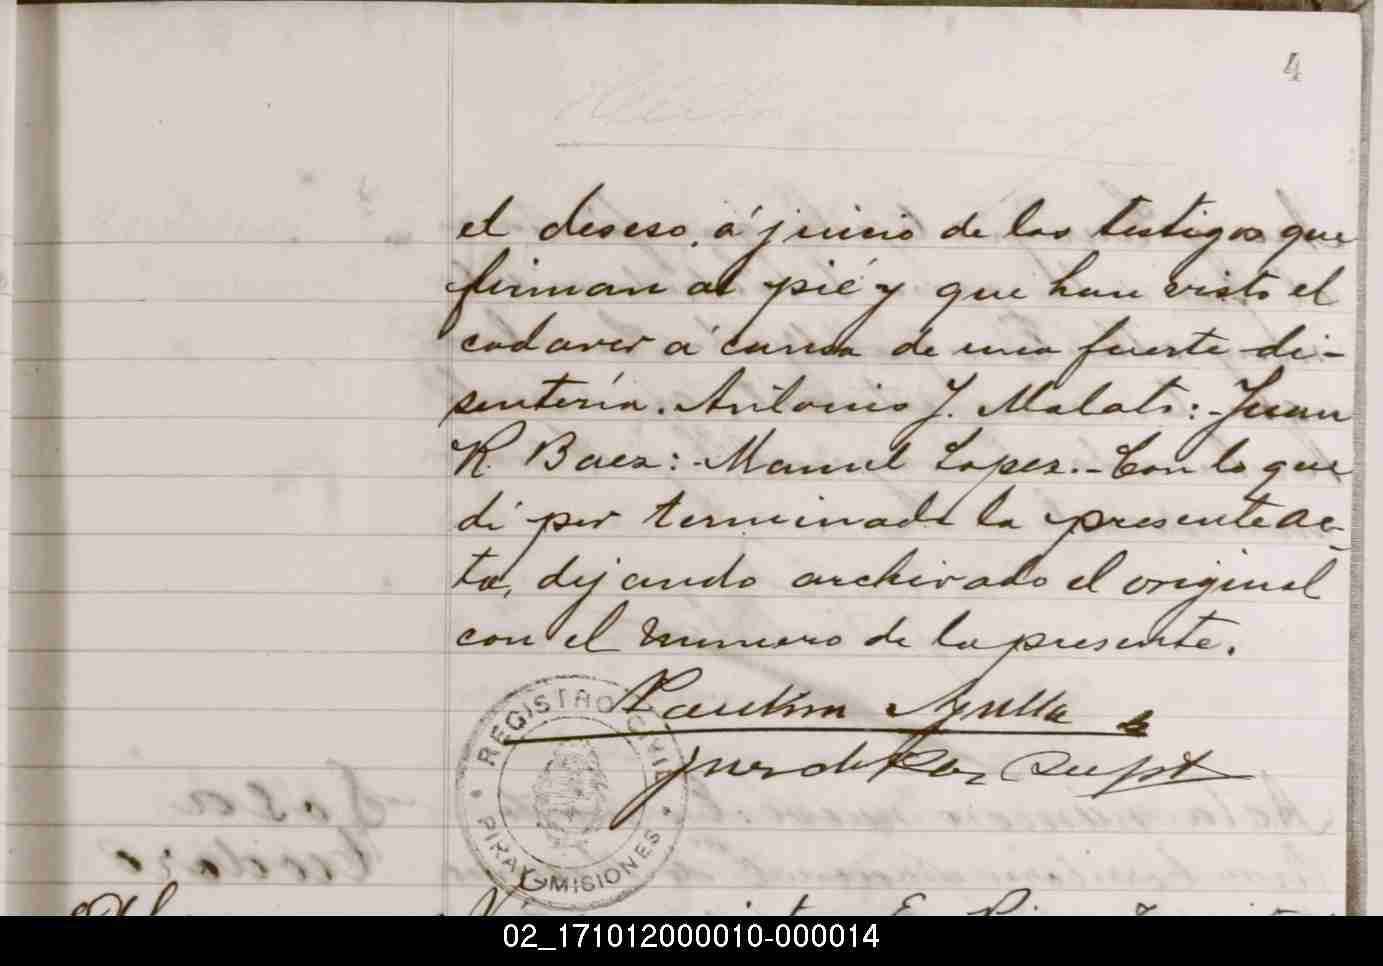 4
el deseso, á juicio de los testigos que
firman al pié y que han visto el
cadaver á causa de una fuerte di-
sentería. Antonio J. Malats: - Juan
R. Baez: - Manuel Lopez. - Con lo que
dí por terminada la presente ac-
ta, dejando archivado el original
con el numero de la presente.
Juez de Paz Supte
REGISTRO CIVIL
PIRAY MISIONES
02_171012000010-000014